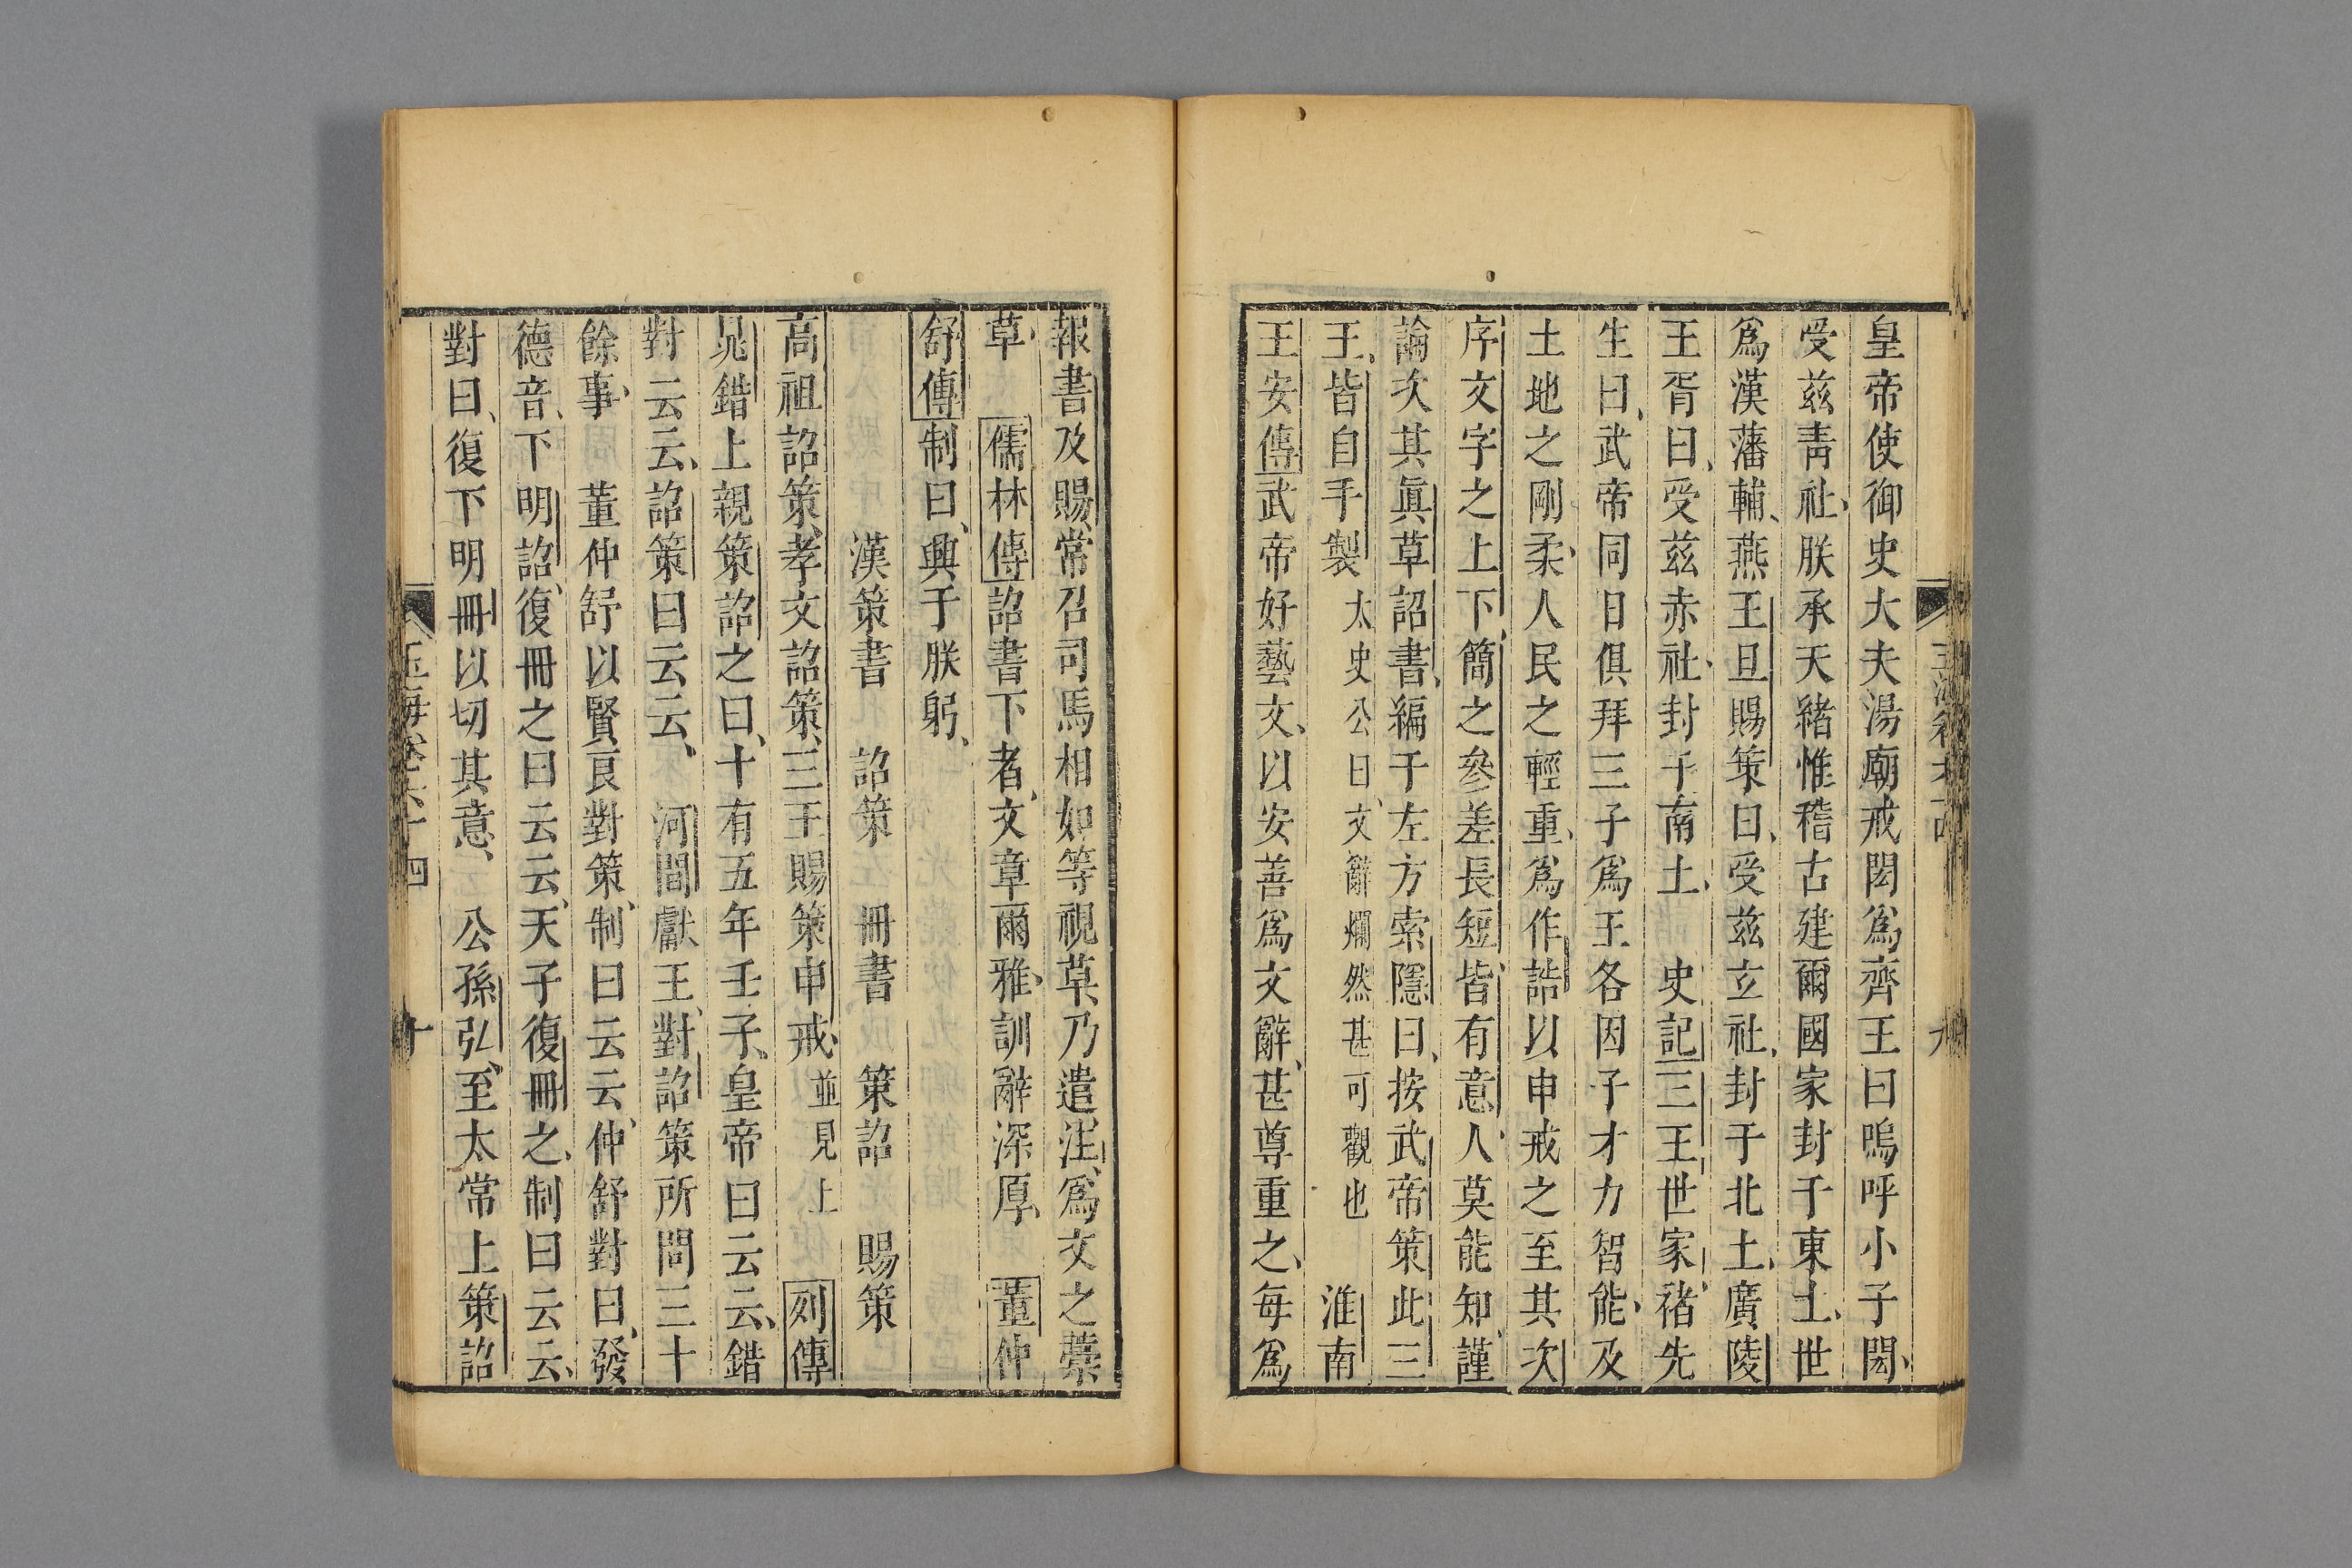 皇帝使御史大夫湯廟戒閎爲齊王曰嗚呼小子閎
受茲靑社朕承天緒惟稽古建爾國家封于東土世
爲漢藩輔燕王旦賜策曰受茲玄社封于北土廣陵
王胥曰受茲赤社封于南土　史記三王世家褚先
生曰武帝同日俱拜三子爲王各因子才力智能及
土地之剛柔人民之輕重爲作誥以申戒之至其次
序文字之上下簡之參差長短皆有意人莫能知謹
論次其眞草詔書編于左方索隱曰按武帝策此三
王皆自手製太史公曰文辭爛然甚可觀也　淮南
王安傳武帝好藝文以安善爲文辭甚尊重之每爲
報書及賜常召司馬相如等視草乃遣注爲文之藁
草　儒林傳詔書下者文章爾雅訓辭深厚　董仲
舒傳制曰興于朕躬
漢策書　詔策　冊書　策詔　賜策
高祖詔策孝文詔策三王賜策申戒並見上　列傳
晁錯上親策詔之曰十有五年壬子皇帝曰云云錯
對云云詔策曰云云　河間獻王對詔策所問三十
餘事　董仲舒以賢良對策制曰云云仲舒對曰發
德音下明詔復冊之曰云云天子復冊之制曰云云
對曰復下明冊以切其意　公孫弘至太常上策詔
玉海卷六十四　十